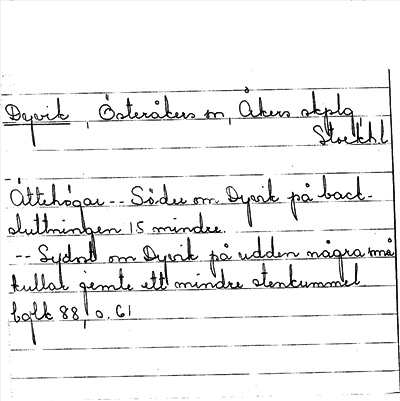 Dyvik, Österåkers sn, Åkers skplg,
Stockhl
Ättehögar -- Söder om Dyvik på back-
sluttningen 15 mindre.
-- Sydost om Dyvik på udden några små
kullar jemte ett mindre stenkummel
48 88, s. 61